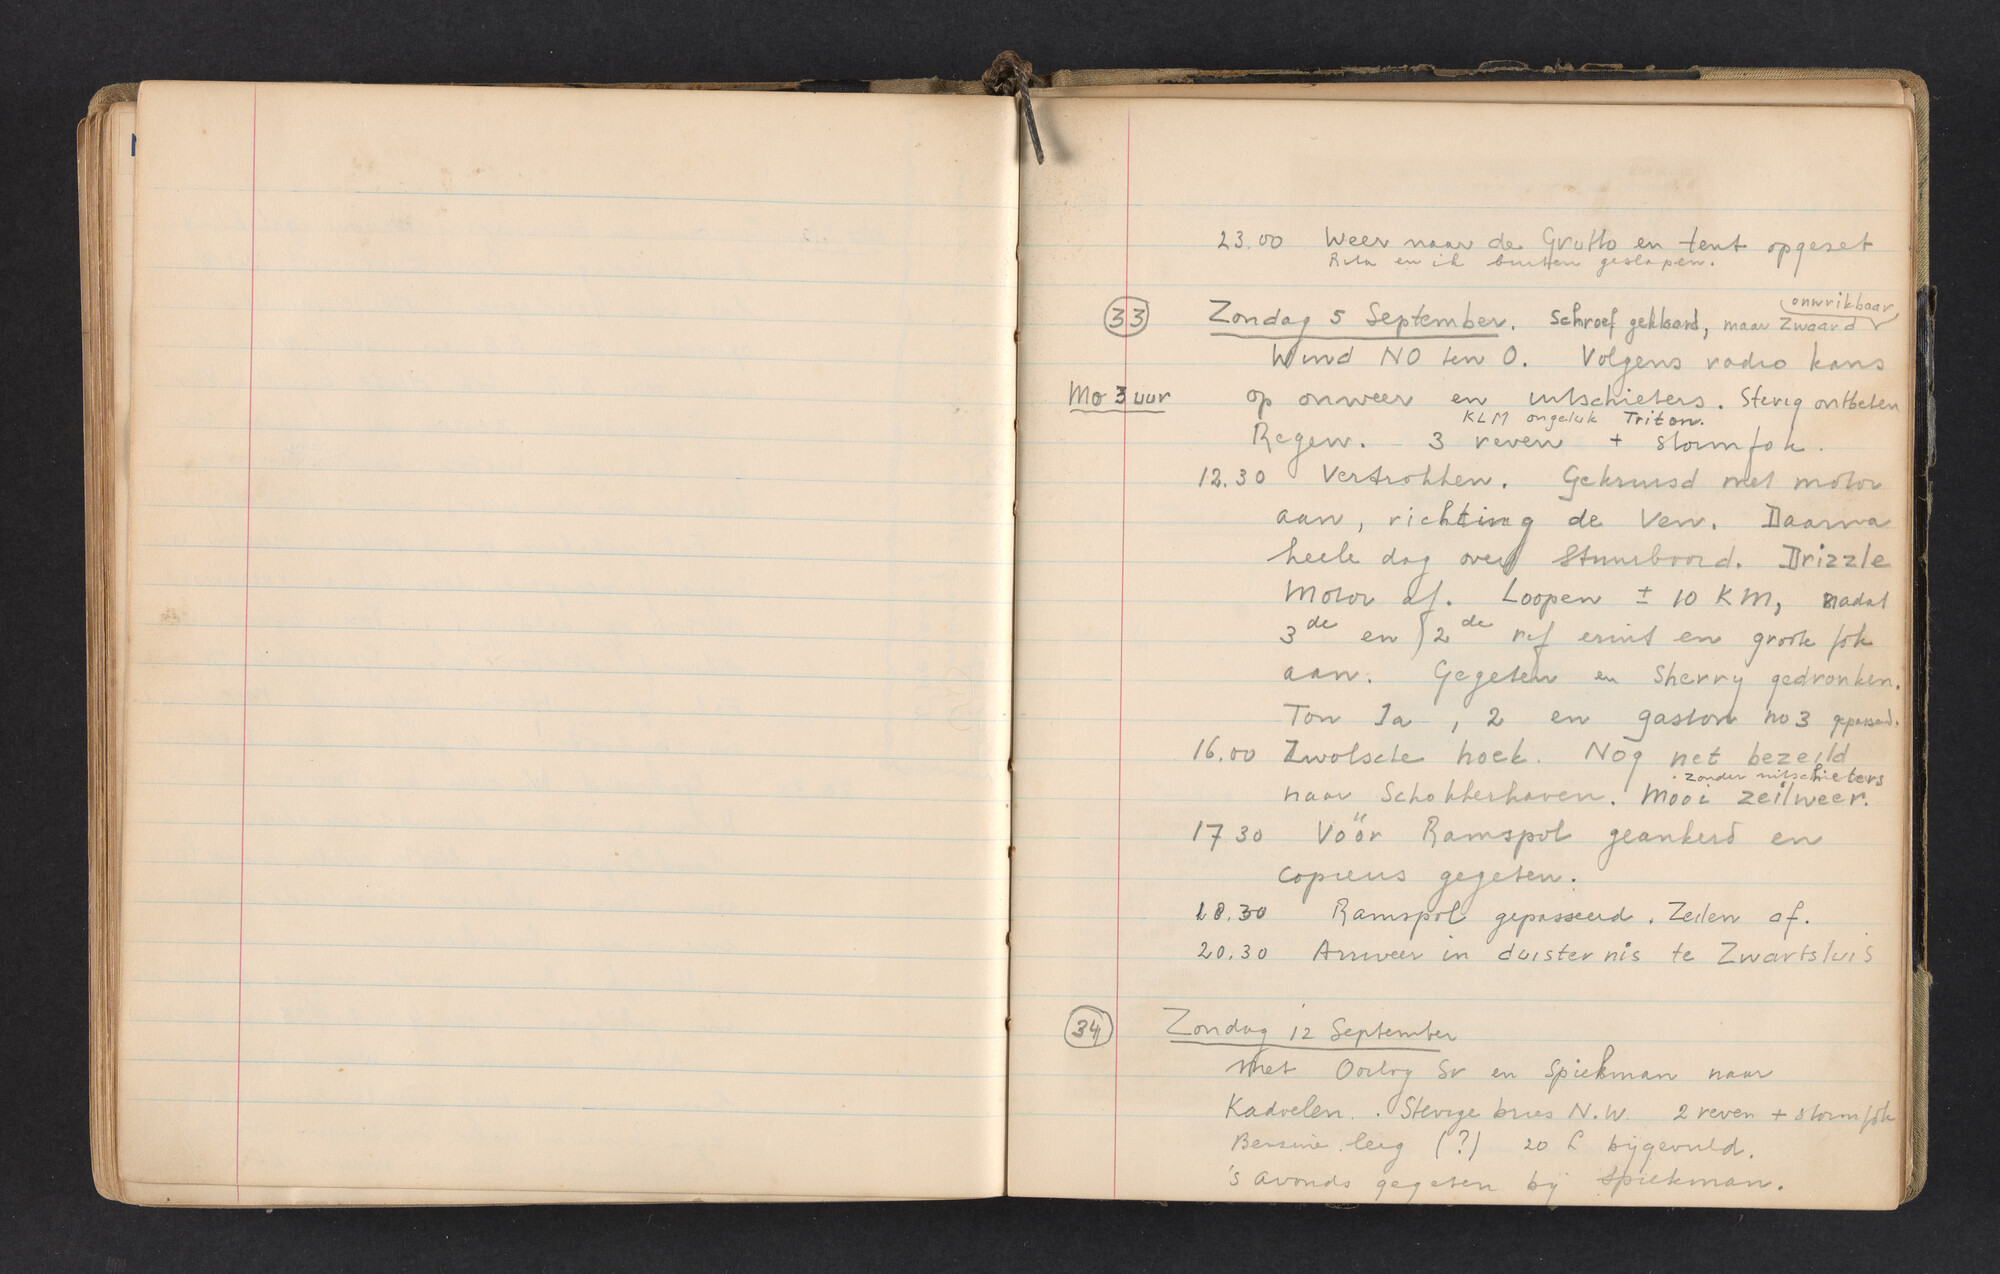 23.00 Weer naar de Grutto en tent opgezet
Rita en ik buiten geslapen.
33 Zondag 5 September. Schroef geklaard, maar Zwaard onwrikbaar
Wind NO ten O. Volgens radio kans
Mo 3 uur op onweer en uitschieters. Stevig ontbeten
KLM ongeluk Triton.
Regen. 3 reven + stormfok.
12.30 Vertrokken. Gekruisd met motor
aan, richting de Ven. Daarna
heele dag over Stuurboord. Drizzle
Motor af. Loopen ± 10 KM, nadat
3de en 2de rif eruit en groote fok
aan. Gegeten en Sherry gedronken.
Ton 1a, 2 en gaston no 3 gepasseerd.
16.00 Zwolsche hoek. Nog net bezeild
zonder uitschieters
naar Schokkerhaven. Mooi zeilweer.
17 30 Vóór Ramspol geankerd en
copieus gegeten.
18.30 Ramspol gepasseerd. Zeilen af.
20.30 Anweer in duisternis te Zwartsluis
34 Zondag 12 September
Met Sr en Spiekman naar
Kadoelen. Stevige bries N.W. 2 reven + stormfok
Benzine leeg (?) 20 L bijgevuld.
's avonds gegeten bij Spiekman.